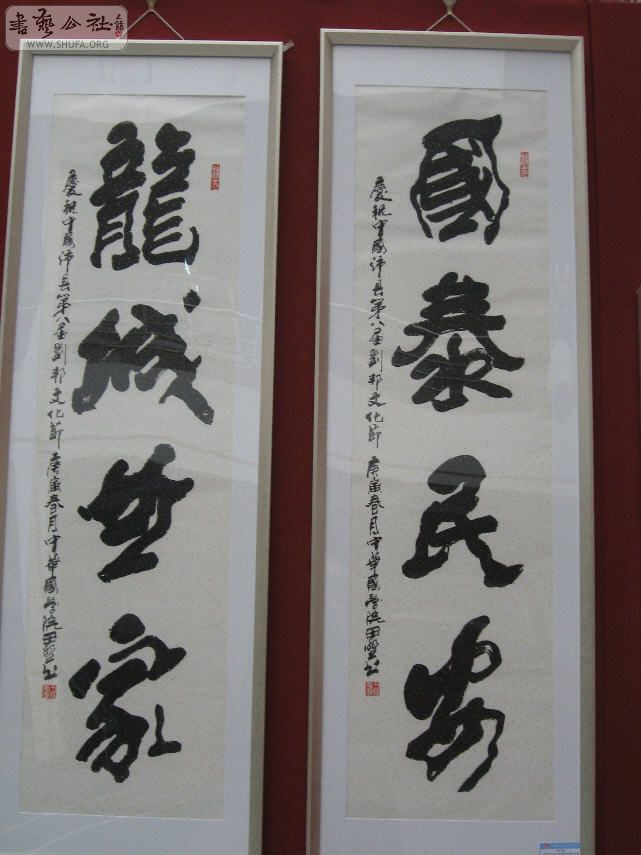 書藝公社
WWW.SHUFA.ORG
國泰民安
慶祝中國沛县第八届劉邦文化節 庚寅春月中華國學院田
龍城世家
慶祝中國沛县第八届劉邦文化節 庚寅春月中華國學院田